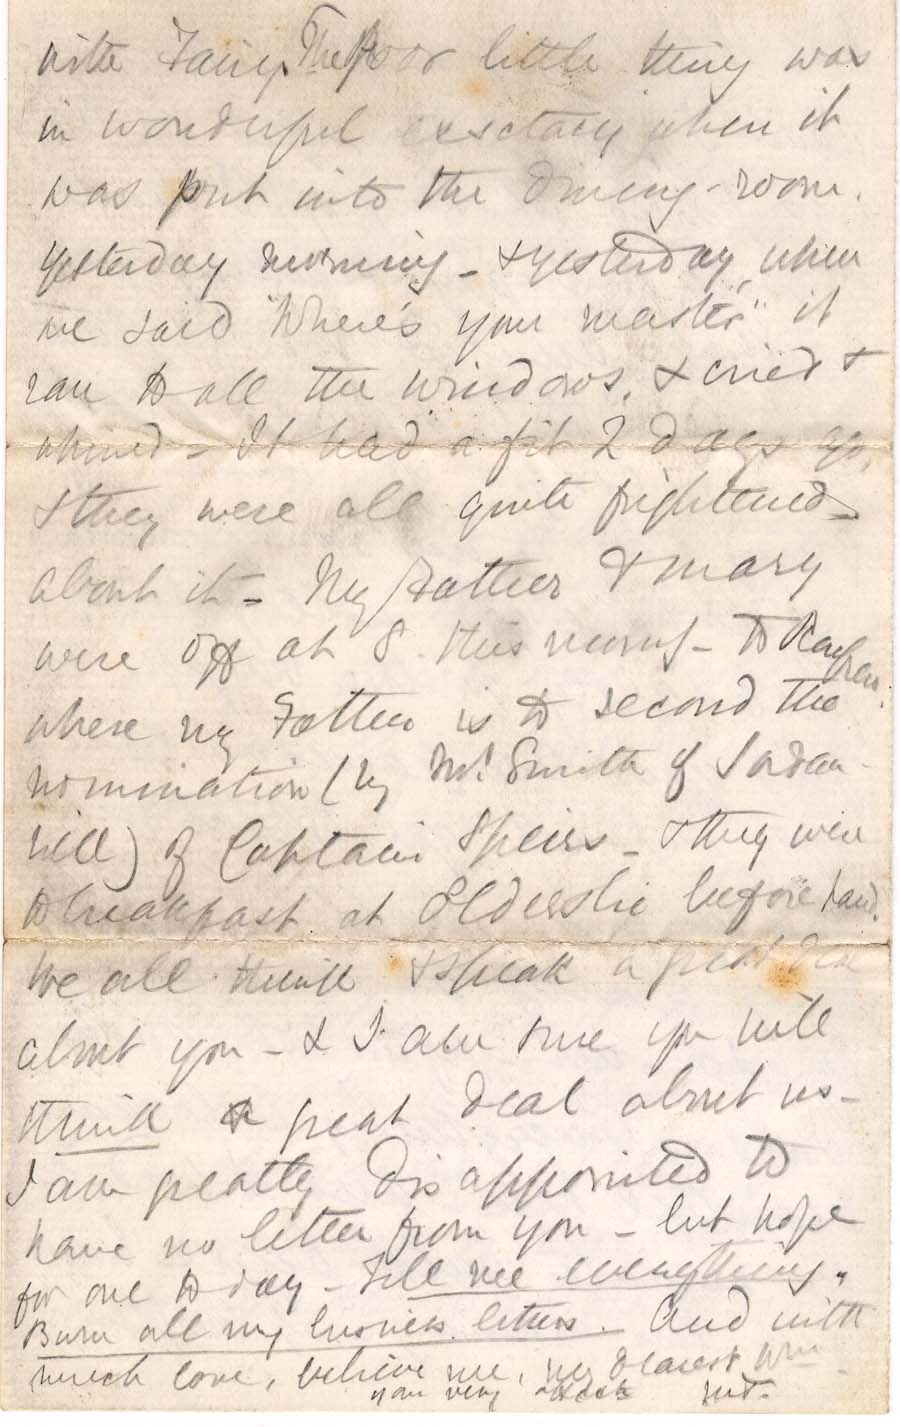 with Fairy. The Poor little thing was
in wonderful exsctacy when it
was put into the dining-room.
yesterday morning - & yesterday, when
we said "Where's your master" it
ran to all the windows, & cried &
whined - It had a fit 2 days ago,
& they were all quite frightened
about it - My Father & Mary
were off at 8 this morng - to Renfrew.
where my Father is to second the
nomination (by Mr. Smith of Jordan-
hill) of Captain Speirs - & they were
to breakfast at Elderslie before hand.
We all think & speak a great deal
about you - & I am sure you will
think a great deal about us -
I am greatly disappointed to
have no letter from you - but hope
for one to day - Tell me everything.
Burn all my business letters. And with
much love, believe me, my dearest Wm
your very affecte